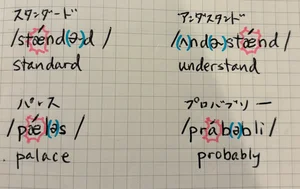 スタンダード
/stǽnd(ɚ)d /
standard
アンダスタンド
/(ʌ)nd(ɚ)stǽnd /
understand
パレス
/pǽl(ə)s /
palace
プロバブリー
/prɑ́b(ə)bli /
probably